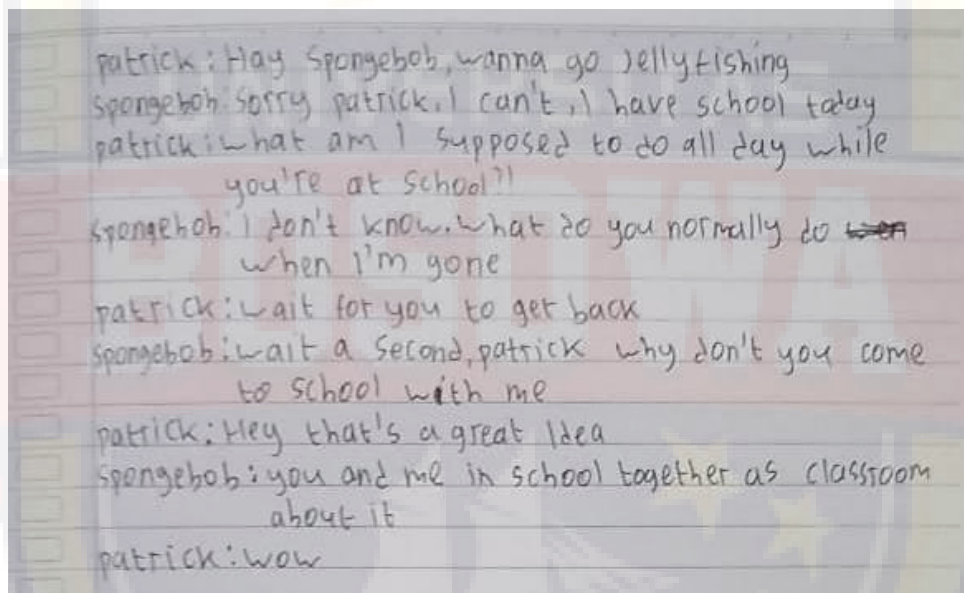 patrick: Hay Spongebob, wanna go Jellyfishing
spongebob: Sorry patrick. I can't, I have school today
patrick: what am I supposed to do all day while
you're at school?!
spongebob: I don't know. what do you normally do
when I'm gone
patrick: wait for you to get back
spongebob: wait a second, patrick why don't you come
to school with me
patrick: Hey that's a great Idea
spongebob: you and me in school together as classroom
about it
patrick: wow
BOSOWA